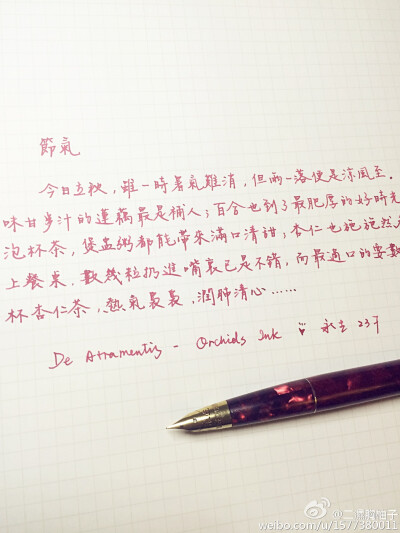 節氣
今日立秋，雖一時暑氣難消，但雨一落便是涼風至.
味甘多汁的蓮藕最是補人；百合也到了最肥厚的好時光
泡杯茶，煲盅粥都能帶來滿口清甜；杏仁也施施然
上餐桌，數幾粒扔進嘴裏已是不錯，而最適口的要數
杯杏仁茶，熱氣裊裊，潤肺清心……
De Atramentis - Orchids Ink 永生 23
@二師腳柚子
weibo.com/u/1577380011